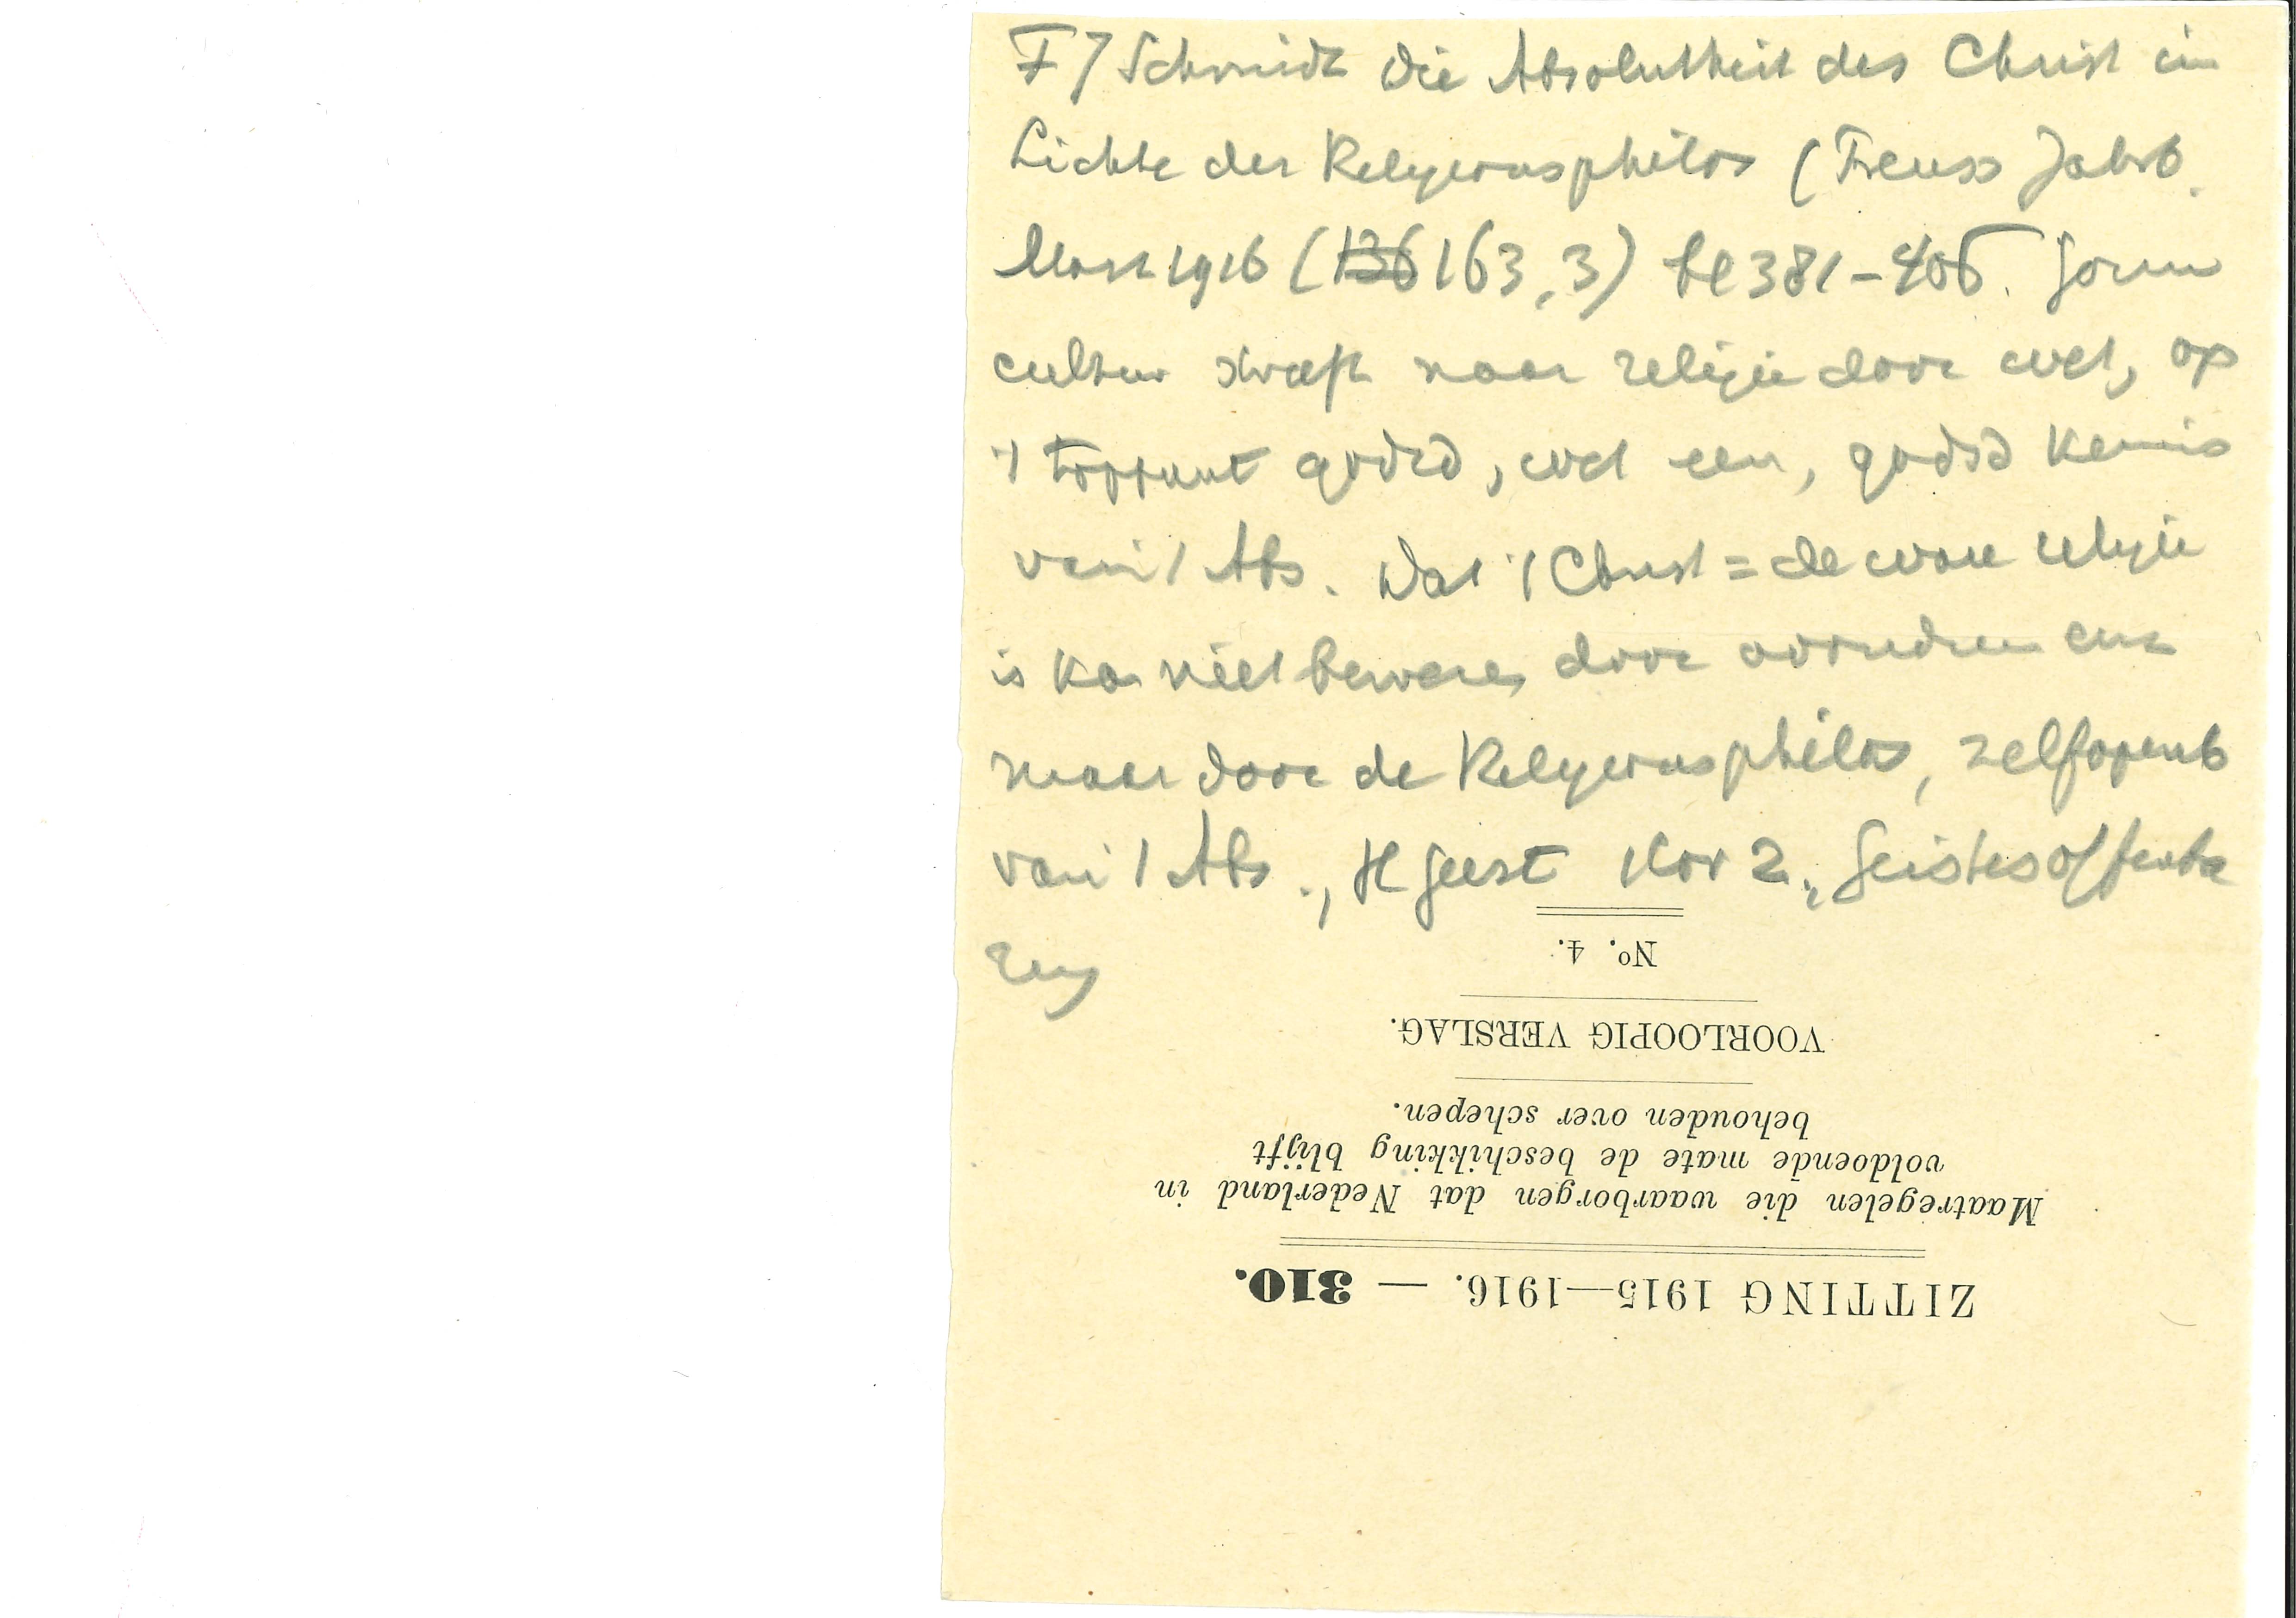 F J Schmidt Die Absolutheit des Christ im
Lichte der Religionsphilos (Preuss Jahrb.
Maart 1916 (136 163,3) bl 381-405.
cultuur streeft naar religie door wet, op
't toppunt godsd, wet een, godsd kennis
van 't Abs. Dat 't Christ = de ware religie
is kan niet bewezen door wonderen enz
maar door de Religionsphilos, zelfopenb
van 't Abs., H Geest 1 Kor 2. Geistesoffenba
rung
No. 4.
VOORLOOPIG VERSLAG.
behouden over schepen.
voldoende mate de beschikking blijft
Maatregelen die waarborgen dat Nederland in
ZITTING 1915—1916. — 310.